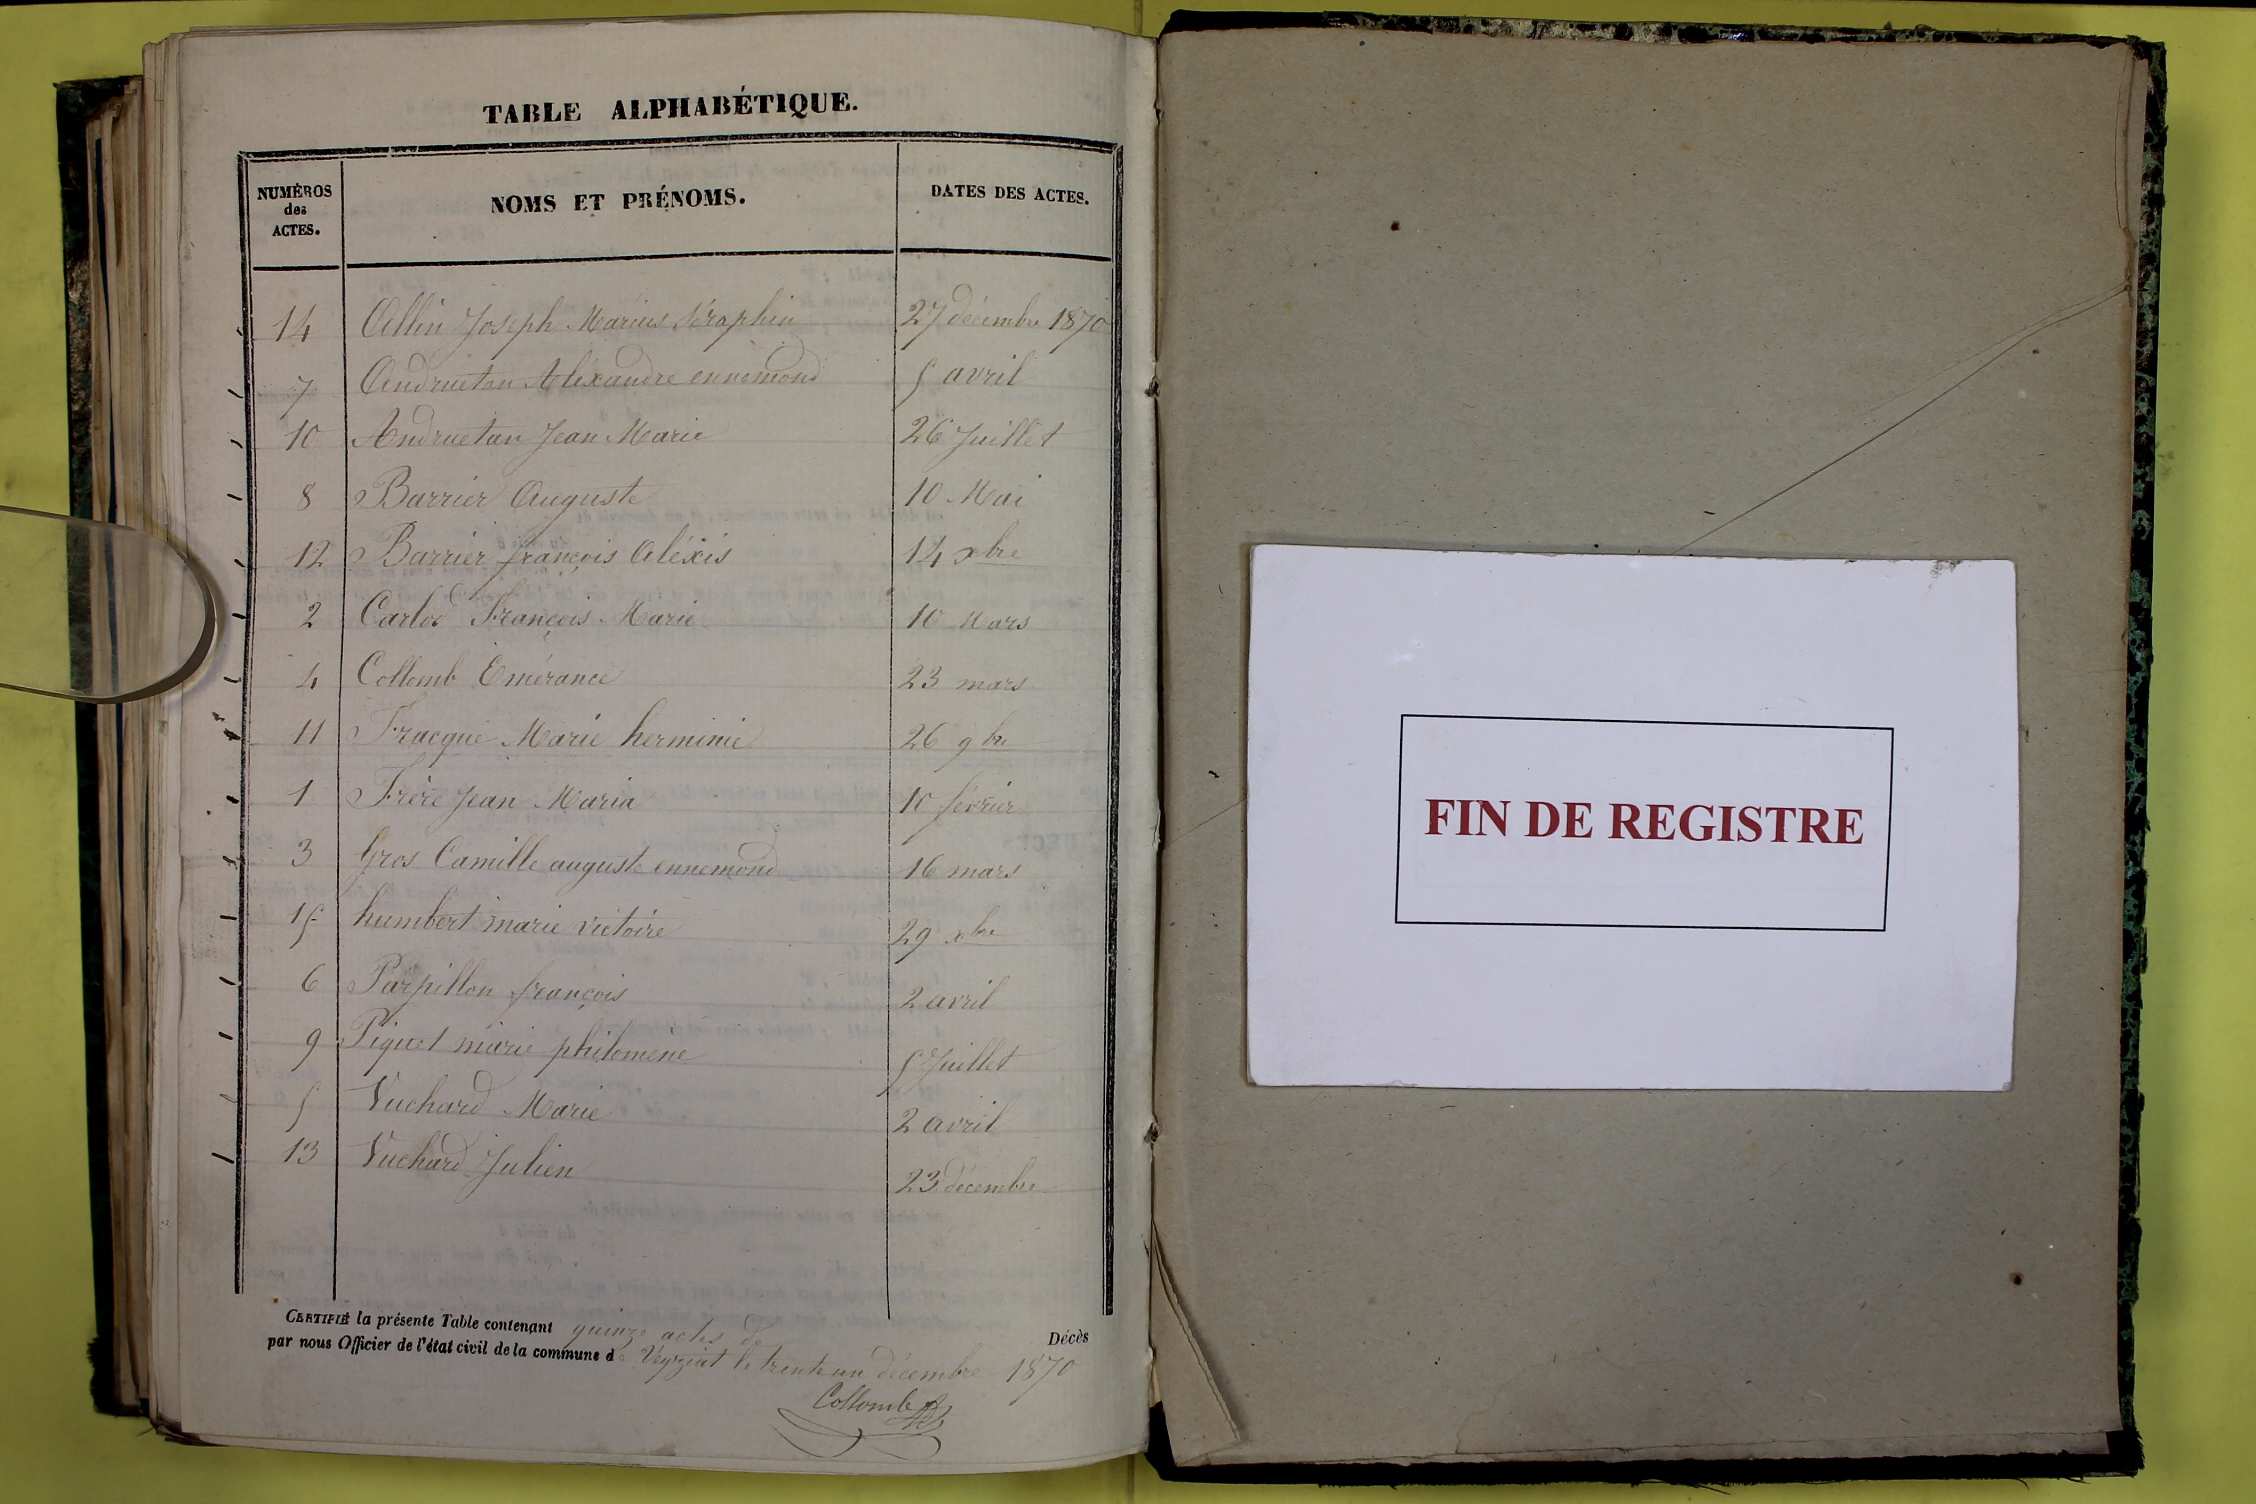 TABLE ALPHABÉTIQUE.
NUMÉROS des ACTES. NOMS ET PRÉNOMS. DATES DES ACTES.
14 Allin Joseph Marius Séraphin 27 décembre 1870
7 Andruetan Aléxandre ennemond 5 avril
10 Andruetan Jean Marie 26 Juillet
8 Barrier Auguste 10 Mai
12 Barrier françois Aléxis 14 xbre
2 Carlod François Marie 10 Mars
4 Collomb Emérance 23 mars
11 Fracque Marie herminie 26 9bre
1 Frère Jean Maria 10 février
3 Gros Camille auguste ennemond 16 mars
15 humbert marie victoire 29 xbre
6 Parpillon françois 2 avril
9 Piquet marie philomene 5 Juillet
5 Vuchard Marie 2 avril
13 Vuchard Julien 23 décembre
CERTIFIÉ la présente Table contenant quinze actes de Décès
par nous Officier de l'état civil de la commune de Veyziat le trente un décembre 1870
Collomb
FIN DE REGISTRE